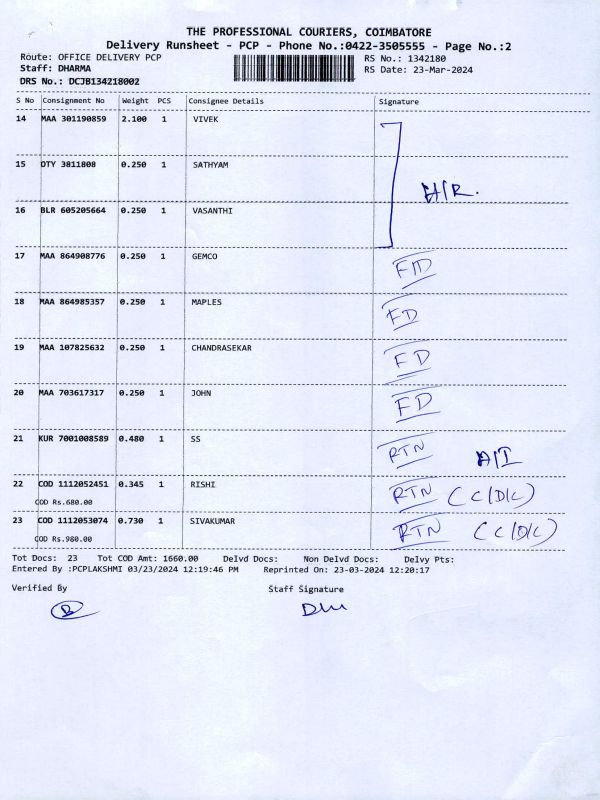 THE PROFESSIONAL COURIERS, COIMBATORE
Delivery Runsheet - PCP - Phone No.:0422-3505555 - Page No.:2
Route: OFFICE DELIVERY PCP RS No.: 1342180
Staff: DHARMA RS Date: 23-Mar-2024
DRS No.: DCJB134218002
S No Consignment No Weight PCS Consignee Details Signature
14 MAA 301190859 2.100 1 VIVEK
15 OTY 3811808 0.250 1 SATHYAM
H/R.
16 BLR 605205664 0.250 1 VASANTHI
17 MAA 864908776 0.250 1 GEMCO F/D
18 MAA 864985357 0.250 1 MAPLES FD
19 MAA 107825632 0.250 1 CHANDRASEKAR FD
20 MAA 703617317 0.250 1 JOHN FD
21 KUR 7001008589 0.480 1 SS RTN A/I
22 COD 1112052451 0.345 1 RISHI RTN (C/D/L)
COD Rs.680.00
23 COD 1112053074 0.730 1 SIVAKUMAR RTN (C/O/L)
COD Rs.980.00
Tot Docs: 23 Tot COD Amt: 1660.00 Delvd Docs: Non Delvd Docs: Delvy Pts:
Entered By :PCPLAKSHMI 03/23/2024 12:19:46 PM Reprinted On: 23-03-2024 12:20:17
Verified By Staff Signature
B